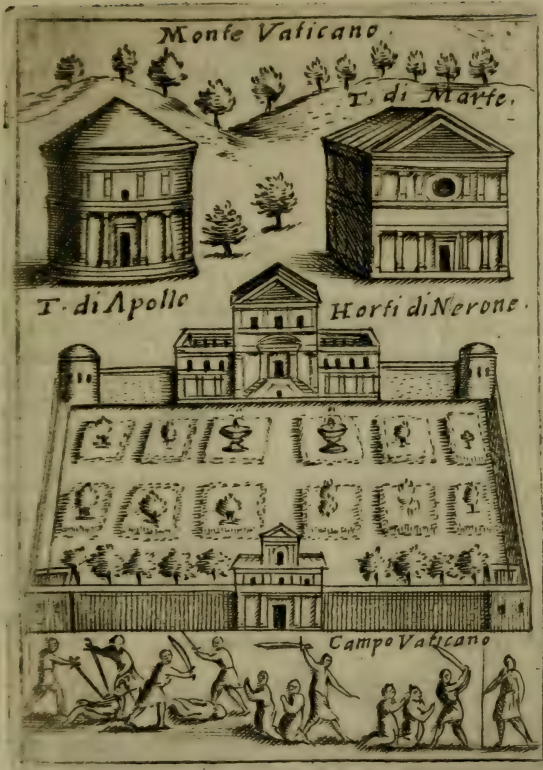 Monte Vaticano.
T. di Marte.
T. di Apollo
Horti di Nerone.
Campo Vaticano